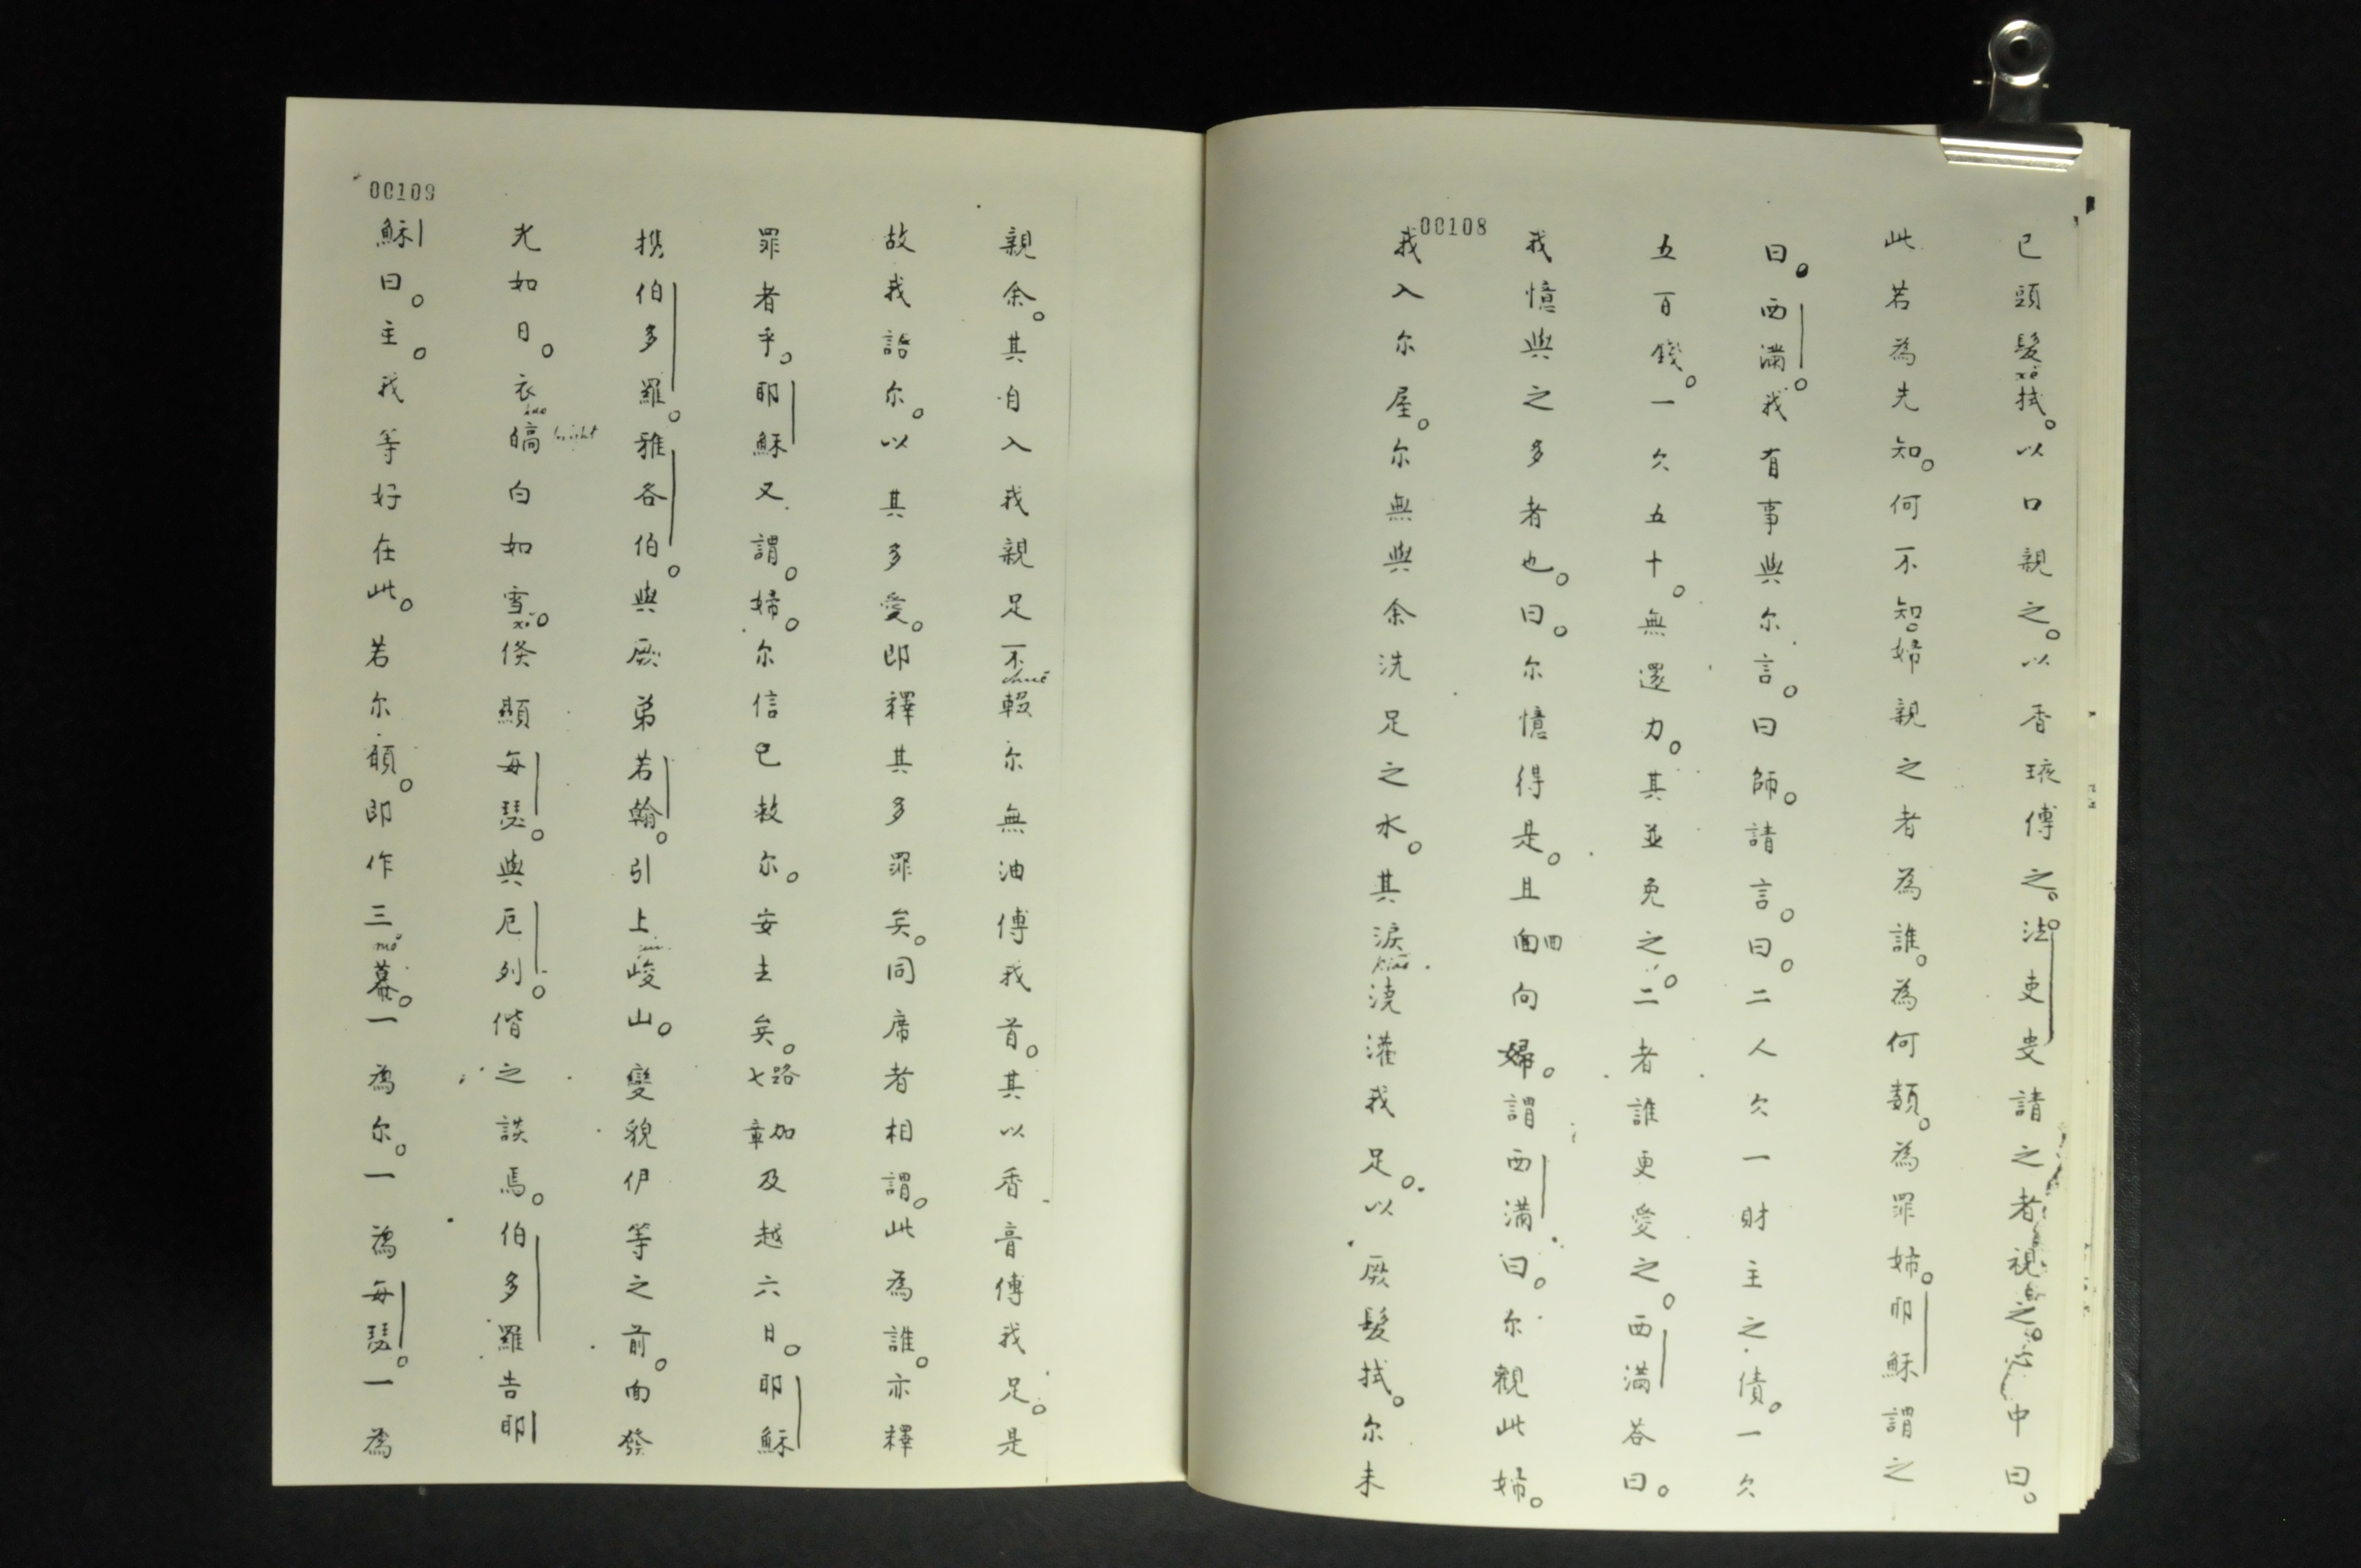 00108
已頭髮拭。以口親之。以香琼傅之。法吏叟請之者視之。心中曰。
此若為先知。何不知。婦親之者為誰。為何類。為罪婦。耶穌謂之
曰。西滿。我有事與尔言。曰師。請言。曰。二人欠一財主之債。一欠
五百錢。一欠五十。無還力。其並免之。二者誰更愛之。西滿荅曰。
我憶與之多者也。曰。尔憶得是。且回面向婦。謂西滿曰。尔觀此婦。
我入尔屋。尔無與余洗足之水。其淚澆灌我足。以厥髮拭。尔未
00109
親余。其自入我親足不輟尔無油傅我首。其以香膏傅我足。是
故我語尔。以其多愛。即釋其多罪矣。同席者相謂。此為誰。亦釋
罪者乎。耶穌又謂。婦。尔信已救尔。安去矣。路加七章及越六日。耶穌
携伯多羅。雅各伯。與厥弟若翰。引上峻山。變貌伊等之前。面發
光如日。衣皜白如雪。倏顯每瑟。與厄列。偕之談焉。伯多羅告耶
bright
穌曰。主。我等好在此。若尔願。即作三幕。一為尔。一為每瑟。一為